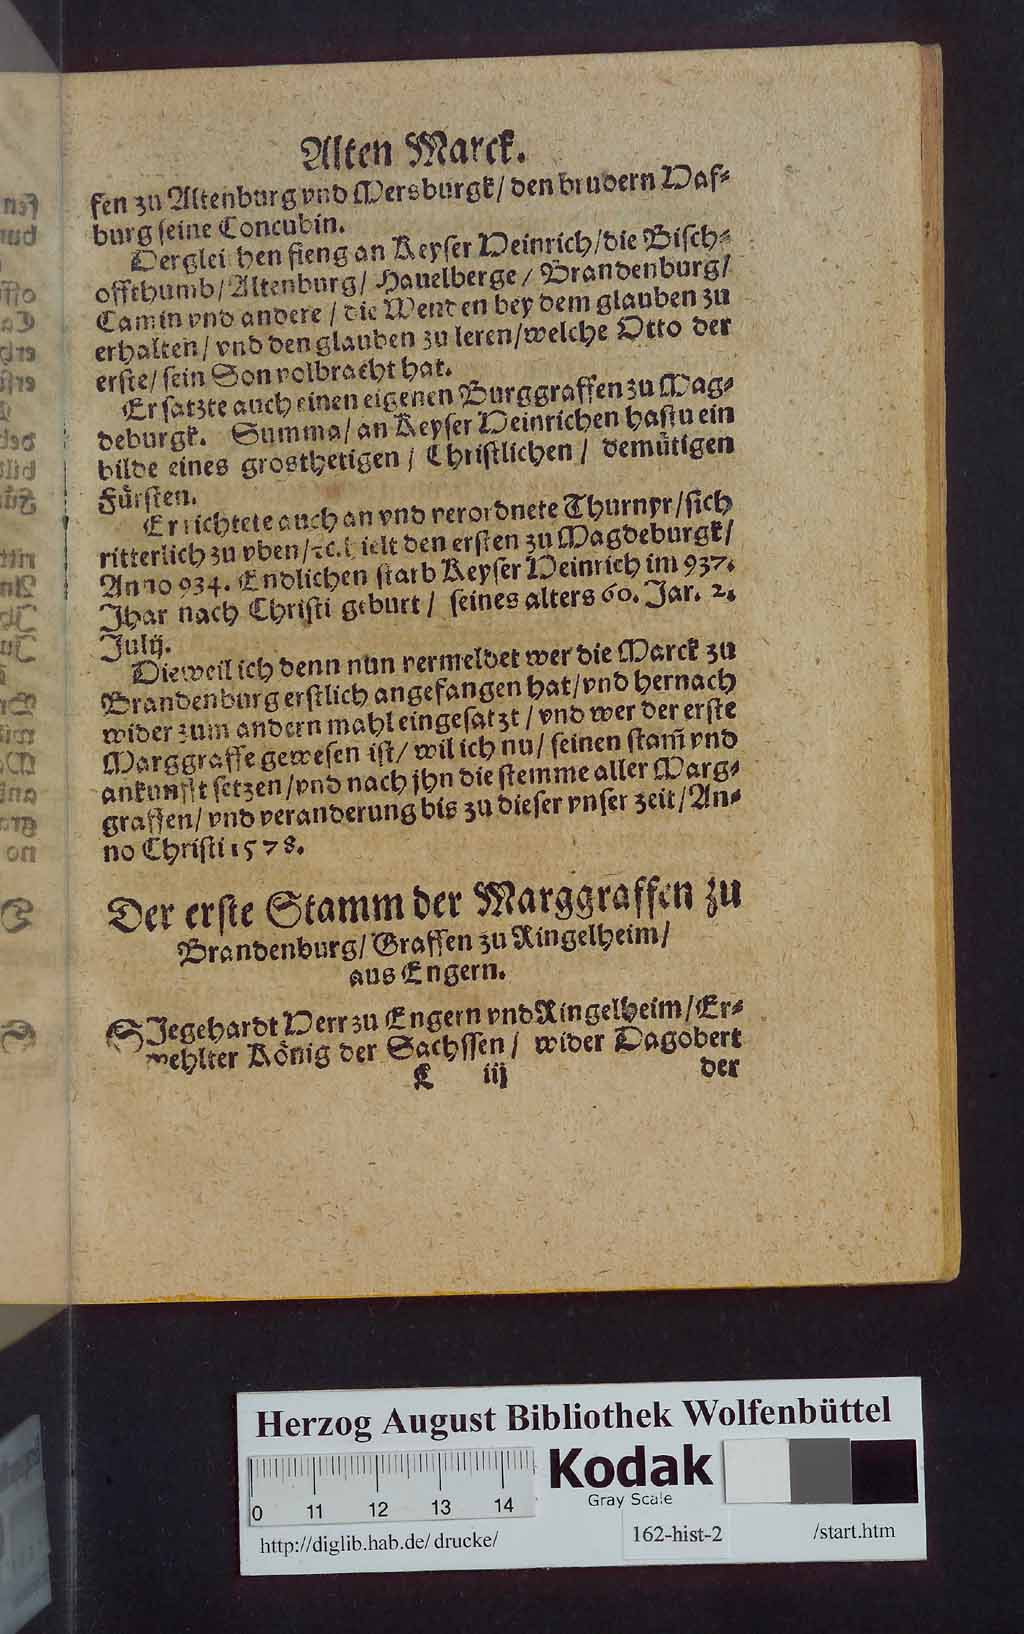 Alten Marck.
fen zu Altenburg vnd Mersburgk/ den brudern Haſ⸗
burg ſeine Concubin.
Derglei hen fieng an Keyſer Heinrich/die Biſch⸗
offthumb/ Altenburg/ Hauelberge/ Brandenburg/
Camin vnd andere/ die Wenden bey dem glauben zu
erhalten/ vnd den glauben zu leren/welche Otto der
erſte/ ſein Son volbracht hat.
Er ſatzte auch einen eigenen Burggraffen zu Mag⸗
deburgk. Summa/ an Keyſer Heinrichen haſtu ein
bilde eines grosthetigen/ Chriſtlichen/ demütigen
Fürſten.
Er richtete auch an vnd verordnete Thurnyr/ſich
ritterlich zu vben/ꝛc. hielt den erſten zu Magdeburgk/
Anno 934. Endlichen ſtarb Keyſer Heinrich im 937.
Jhar nach Chriſti geburt/ ſeines alters 60. Jar. 2.
Julij.
Dieweil ich denn nun vermeldet wer die Marck zu
Brandenburg erſtlich angefangen hat/vnd hernach
wider zum andern mahl eingeſatzt/ vnd wer der erſte
Marggraffe geweſen iſt/ wil ich nu/ ſeinen ſtam̃ vnd
ankunfft ſetzen/vnd nach jhn die ſtemme aller Marg⸗
graffen/ vnd veranderung bis zu dieſer vnſer zeit/ An⸗
no Chriſti 1578.
Der erſte Stamm der Marggraffen zu
Brandenburg/ Graffen zu Ringelheim/
aus Engern.
SJegehardt Herr zu Engern vnd Ringelheim/Er⸗
wehlter König der Sachſſen/ wider Dagobert
C iij der
Herzog August Bibliothek Wolfenbüttel
Kodak
Gray Scale
0 11 12 13 14
http://diglib.hab.de/drucke/ 162-hist-2 /start.htm